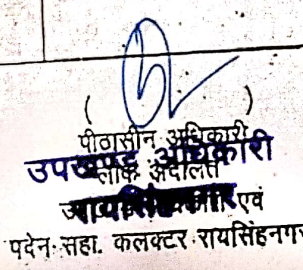 (          )
पीठासीन अधिकारी
उपखण्ड अधिकारी
लोक अदालत
रायसिंहनगर
एवं
पदेन सहा. कलक्टर रायसिंहनगर